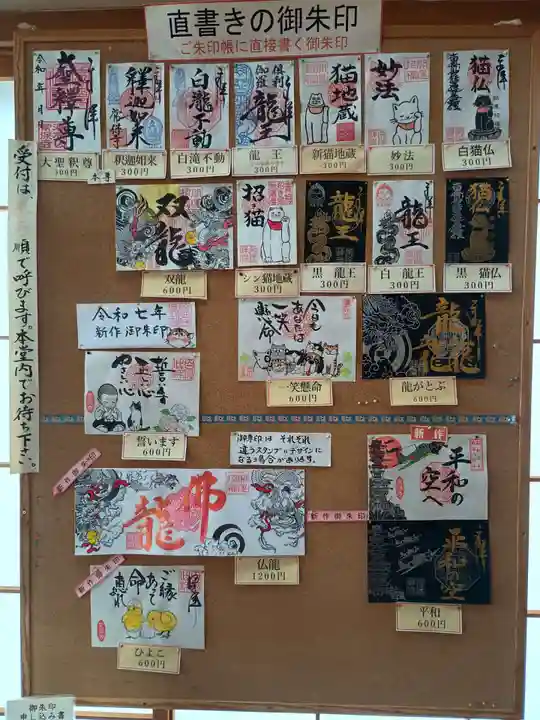 直書きの御朱印
ご朱印帳に直接書く御朱印
受付は、
順で呼びます。本堂内でお待ち下さい。
大聖釈尊
300円
釈迦如来
300円
本尊
白滝不動
300円
龍王
300円
新猫地蔵
300円
妙法
300円
白猫仏
300円
白瀧不動
龍王
猫地蔵
妙法
猫仏
双龍
双龍
600円
招・猫
シン猫地蔵
300円
龍王
黒 龍王
300円
龍王
白 龍王
300円
猫仏
黒 猫仏
300円
令和七年
新作御朱印
今日も
あなたは
一笑
懸命
一笑懸命
600円
龍がとぶ
600円
誓います
600円
御朱印は それぞれ
違うスタンプやデザインに
なる場合があります。
新作
平和の
空へ
平和
600円
新作御朱印
佛
龍
仏龍
1200円
新作御朱印
新作御朱印
ご縁
あって
命
恵まれ
ひよこ
600円
御朱印
申し込み書